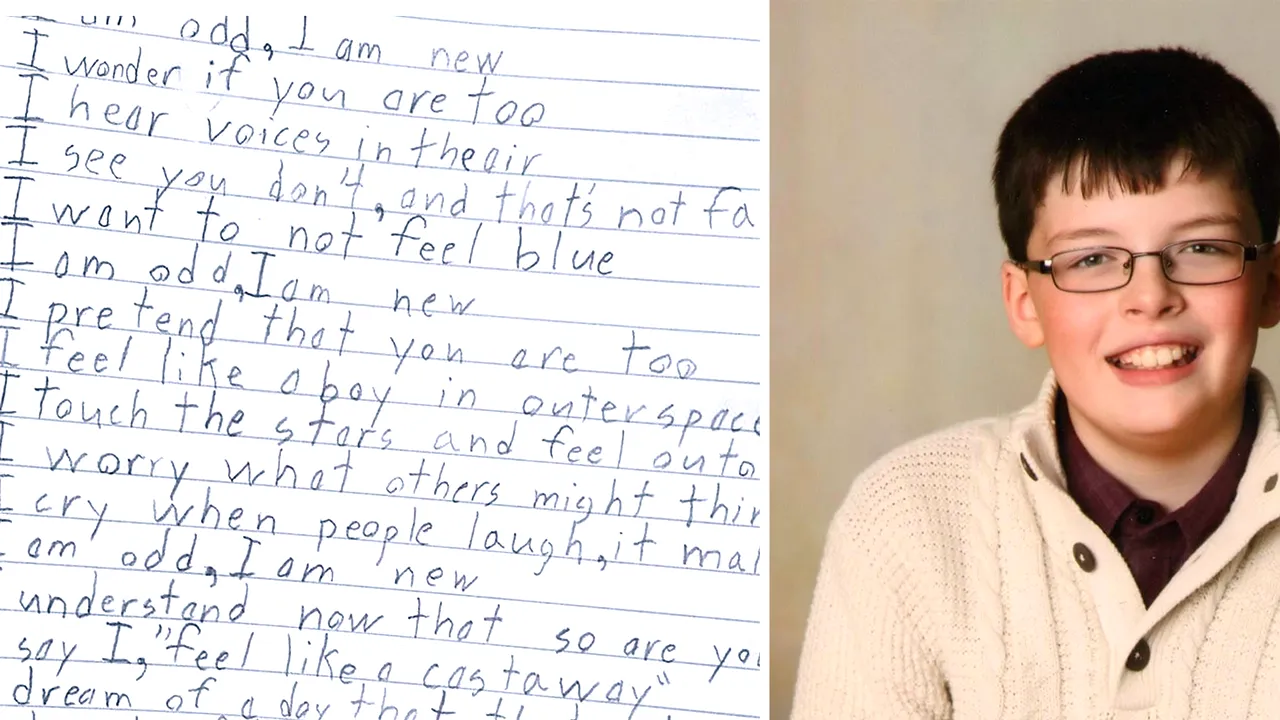 I am odd, I am new
I wonder if you are too
I hear voices in the air
I see you don't, and that's not fa
I want to not feel blue
I am odd, I am new
I pretend that you are too
I feel like a boy in outerspace
I touch the stars and feel outo
I worry what others might thin
I cry when people laugh, it mal
I am odd, I am new
understand now that so are you
say I, "feel like a castaway"
dream of a day that